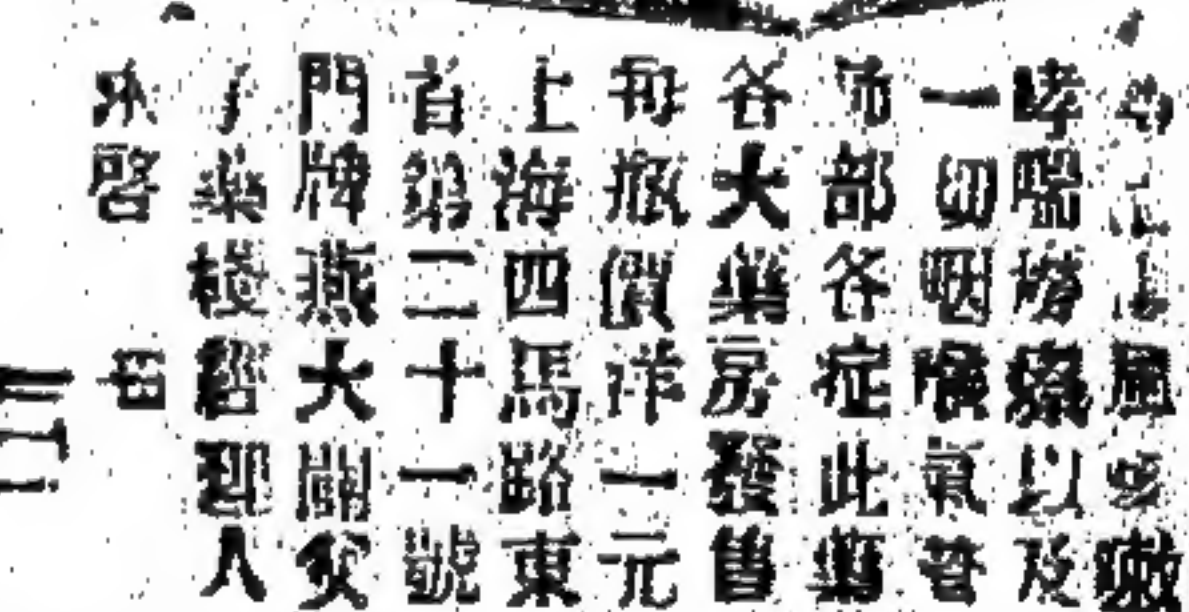 風咳嗽
哮喘癆瘵以及
一切咽喉氣管
肺部各症此藥
各大藥房發售
每瓶價洋一元
上海四馬路東
首第二十一號
門牌燕大父
子藥棧經理人
啓